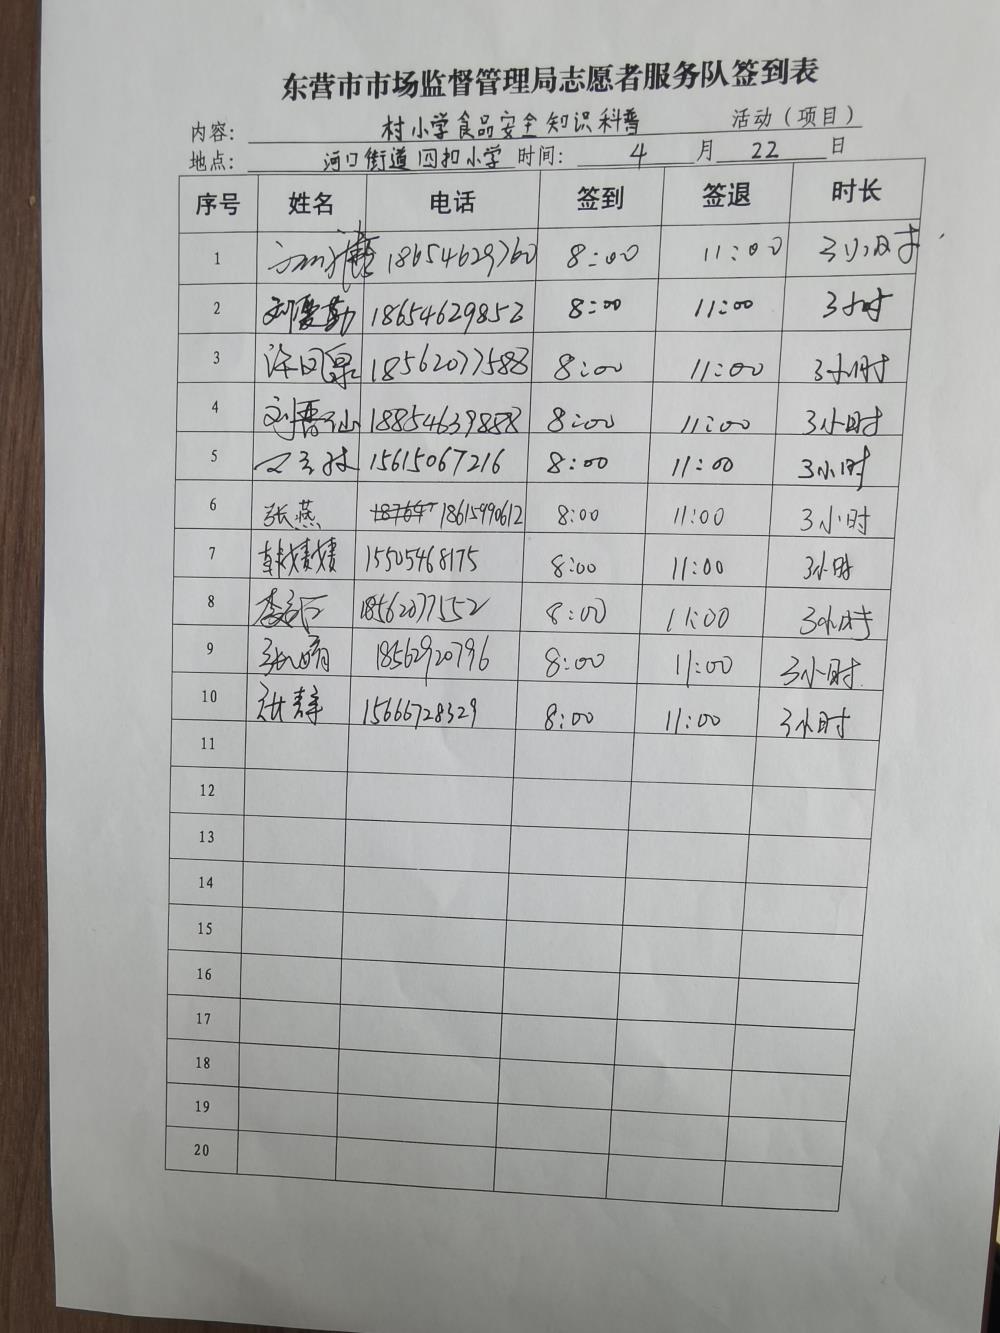 东营市市场监督管理局志愿者服务队签到表
内容: 村小学食品安全知识科普 活动（项目）
地点: 河口街道四扣小学 时间: 4 月 22 日
序号 姓名 电话 签到 签退 时长
1 18654629760 8:00 11:00 3小时
2 刘爱勤 18654629852 8:00 11:00 3小时
3 18562077588 8:00 11:00 3小时
4 18854639888 8:00 11:00 3小时
5 15615067216 8:00 11:00 3小时
6 张燕 18615990612 8:00 11:00 3小时
7 韩婧婧 15505468175 8:00 11:00 3小时
8 18562077552 8:00 11:00 3小时
9 18562920796 8:00 11:00 3小时
10 张静 15666728329 8:00 11:00 3小时
11
12
13
14
15
16
17
18
19
20